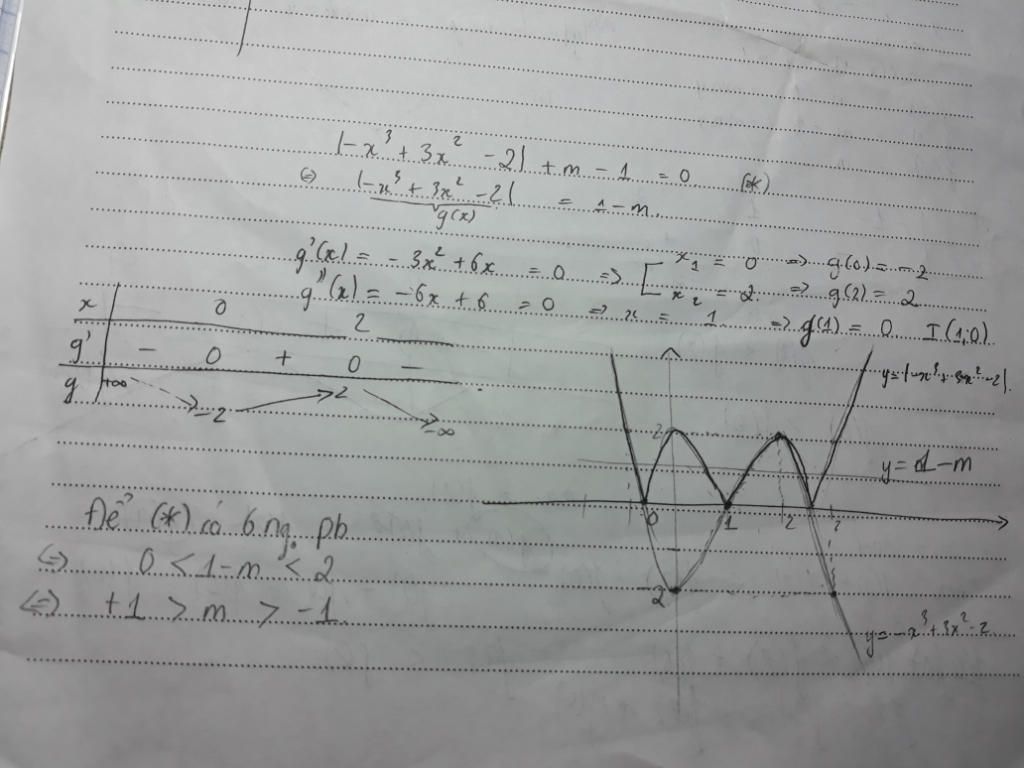 |-x³ + 3x² - 2| + m - 1 = 0 (*)
⇔ |-x³ + 3x² - 2| = 1 - m
g(x)
g'(x) = - 3x² + 6x = 0 => [ x₁ = 0 => g(0) = -2
x₂ = 2 => g(2) = 2
g''(x) = -6x + 6 = 0 => x = 1 => g(1) = 0 I(1;0)
x 0 2
g' - 0 + 0 -
g +∞ -2 2 -∞
y = |-x³ + 3x² - 2|
2
y = 1 - m
0 1 2
-2
y = -x³ + 3x² - 2
Để (*) có 6 ng. pb
⇔ 0 < 1 - m < 2
⇔ +1 > m > -1